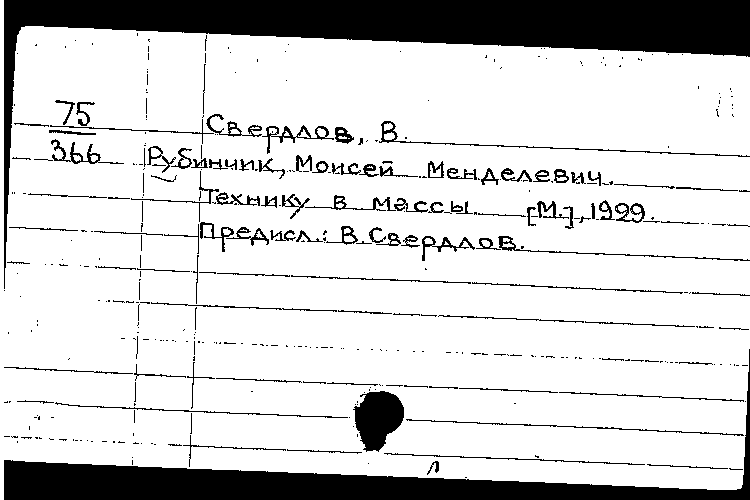 75
366
Свердлов, В.
Рубинчик, Моисей Менделевич.
Технику в массы. [М.], 1929.
Предисл.: В. Свердлов.